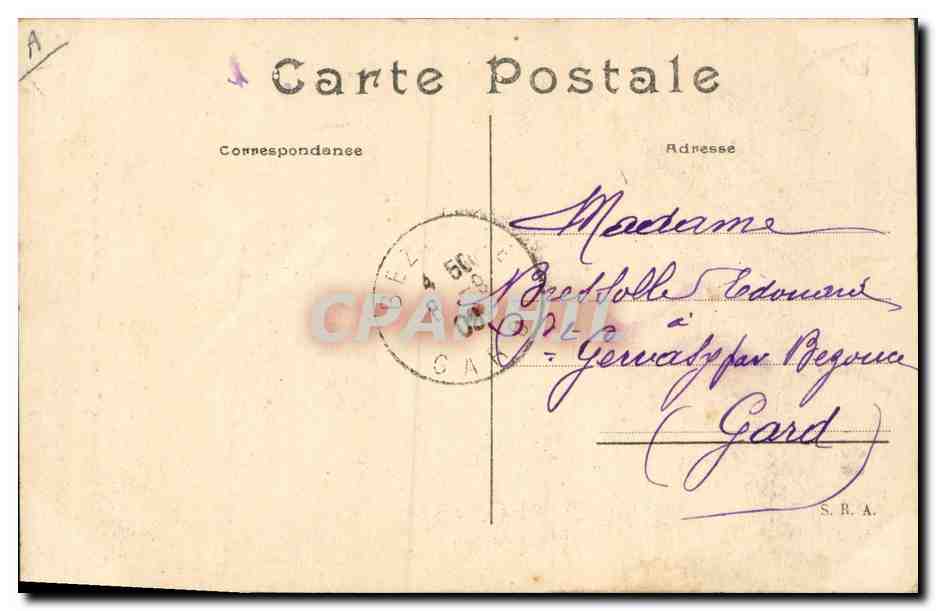 A
Carte Postale
Correspondance
Adresse
Madame
Bressolle Edouard
à
St Gervasy par Bezouce
(Gard)
BEZ
4 50
8
08
GARD
CPARAMA
S. R. A.